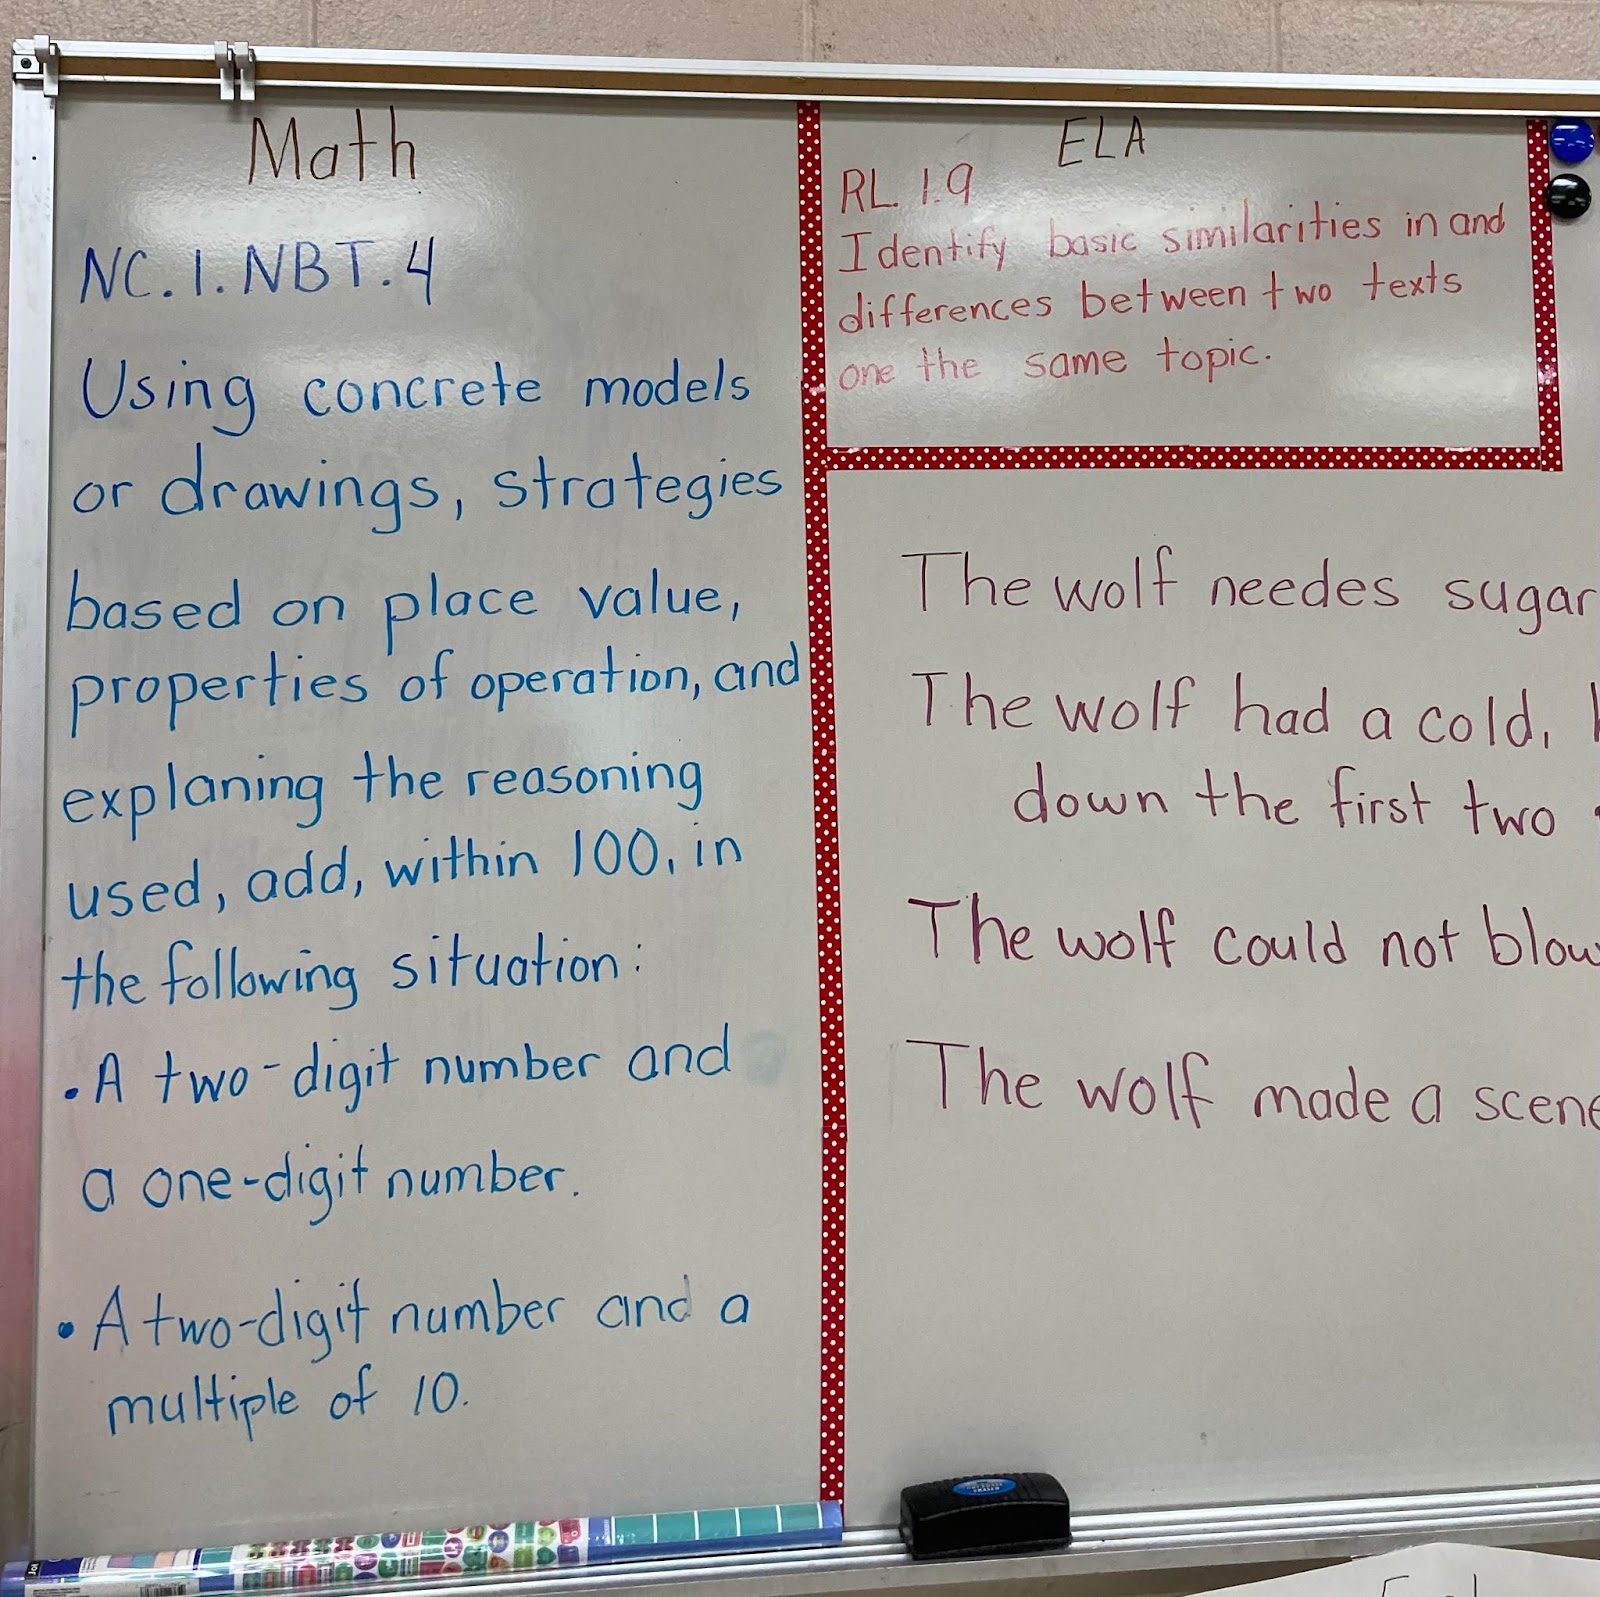 Math
NC.1.NBT.4
Using concrete models
or drawings, strategies
based on place value,
properties of operation, and
explaning the reasoning
used, add, within 100, in
the following situation:
• A two-digit number and
a one-digit number.
• A two-digit number and a
multiple of 10.
ELA
RL. 1.9
Identify basic similarities in and
differences between two texts
one the same topic.
The wolf needes sugar
The wolf had a cold,
down the first two
The wolf could not blow
The wolf made a scene